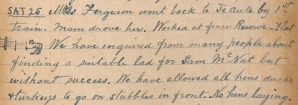 SAT 26 Miss Ferguson went back to Te Aute by 1st
train. Mam drove her. Worked at fence Reserve-Flat
We have enquired from many people about
finding a suitable lad for Sam McNab but
without success. We have allowed all hens ducks
& turkeys to go on stubbles in front. No hens laying.